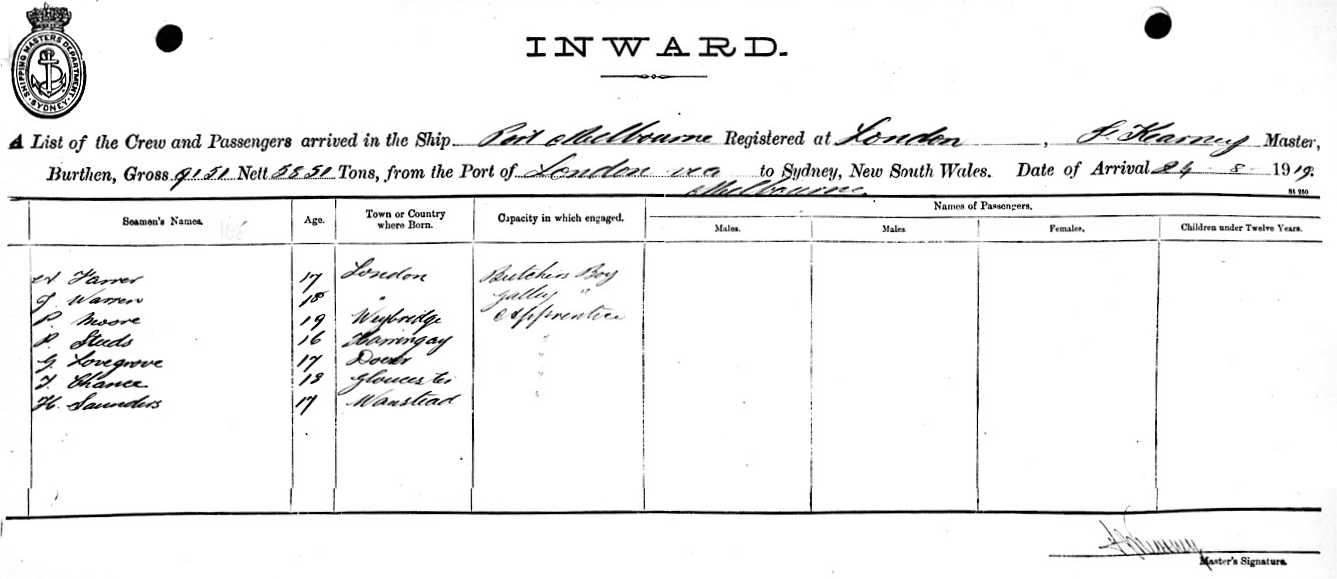 SHIPPING MASTERS DEPARTMENT. SYDNEY.
INWARD.
A List of the Crew and Passengers arrived in the Ship Port Melbourne Registered at London, Kearney Master,
Burthen, Gross 9151 Nett 5851 Tons, from the Port of London via Melbourne to Sydney, New South Wales. Date of Arrival 24 8 1919.
Seamen's Names. Age. Town or Country where Born. Capacity in which engaged. Names of Passengers.
Males. Males Females. Children under Twelve Years.
Farrer 17 London Butchers Boy
Warren 18 " Galley "
P. Moore 19 Weybridge Apprentice
P. Studs 16 Harringay "
G. Lovegrove 17 Dover "
T. Chance 18 Gloucester "
H. Saunders 17 Wanstead
Master's Signature.